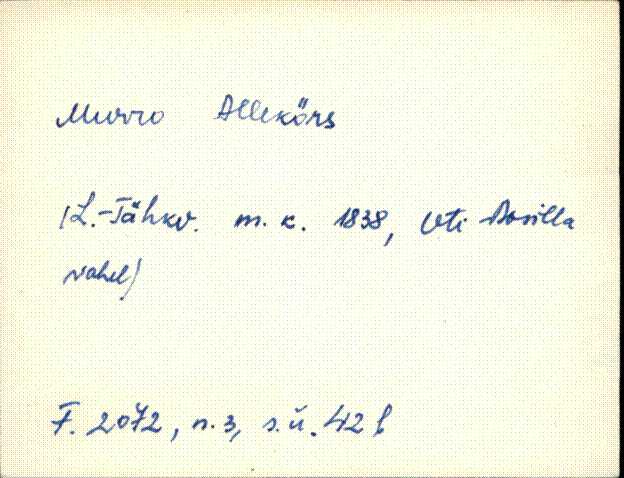 Murro Allekõrs
(L.-Tähkv. m. k. 1838, Uti
vahel)
F. 2072, n. 3, s. ü. 42 l